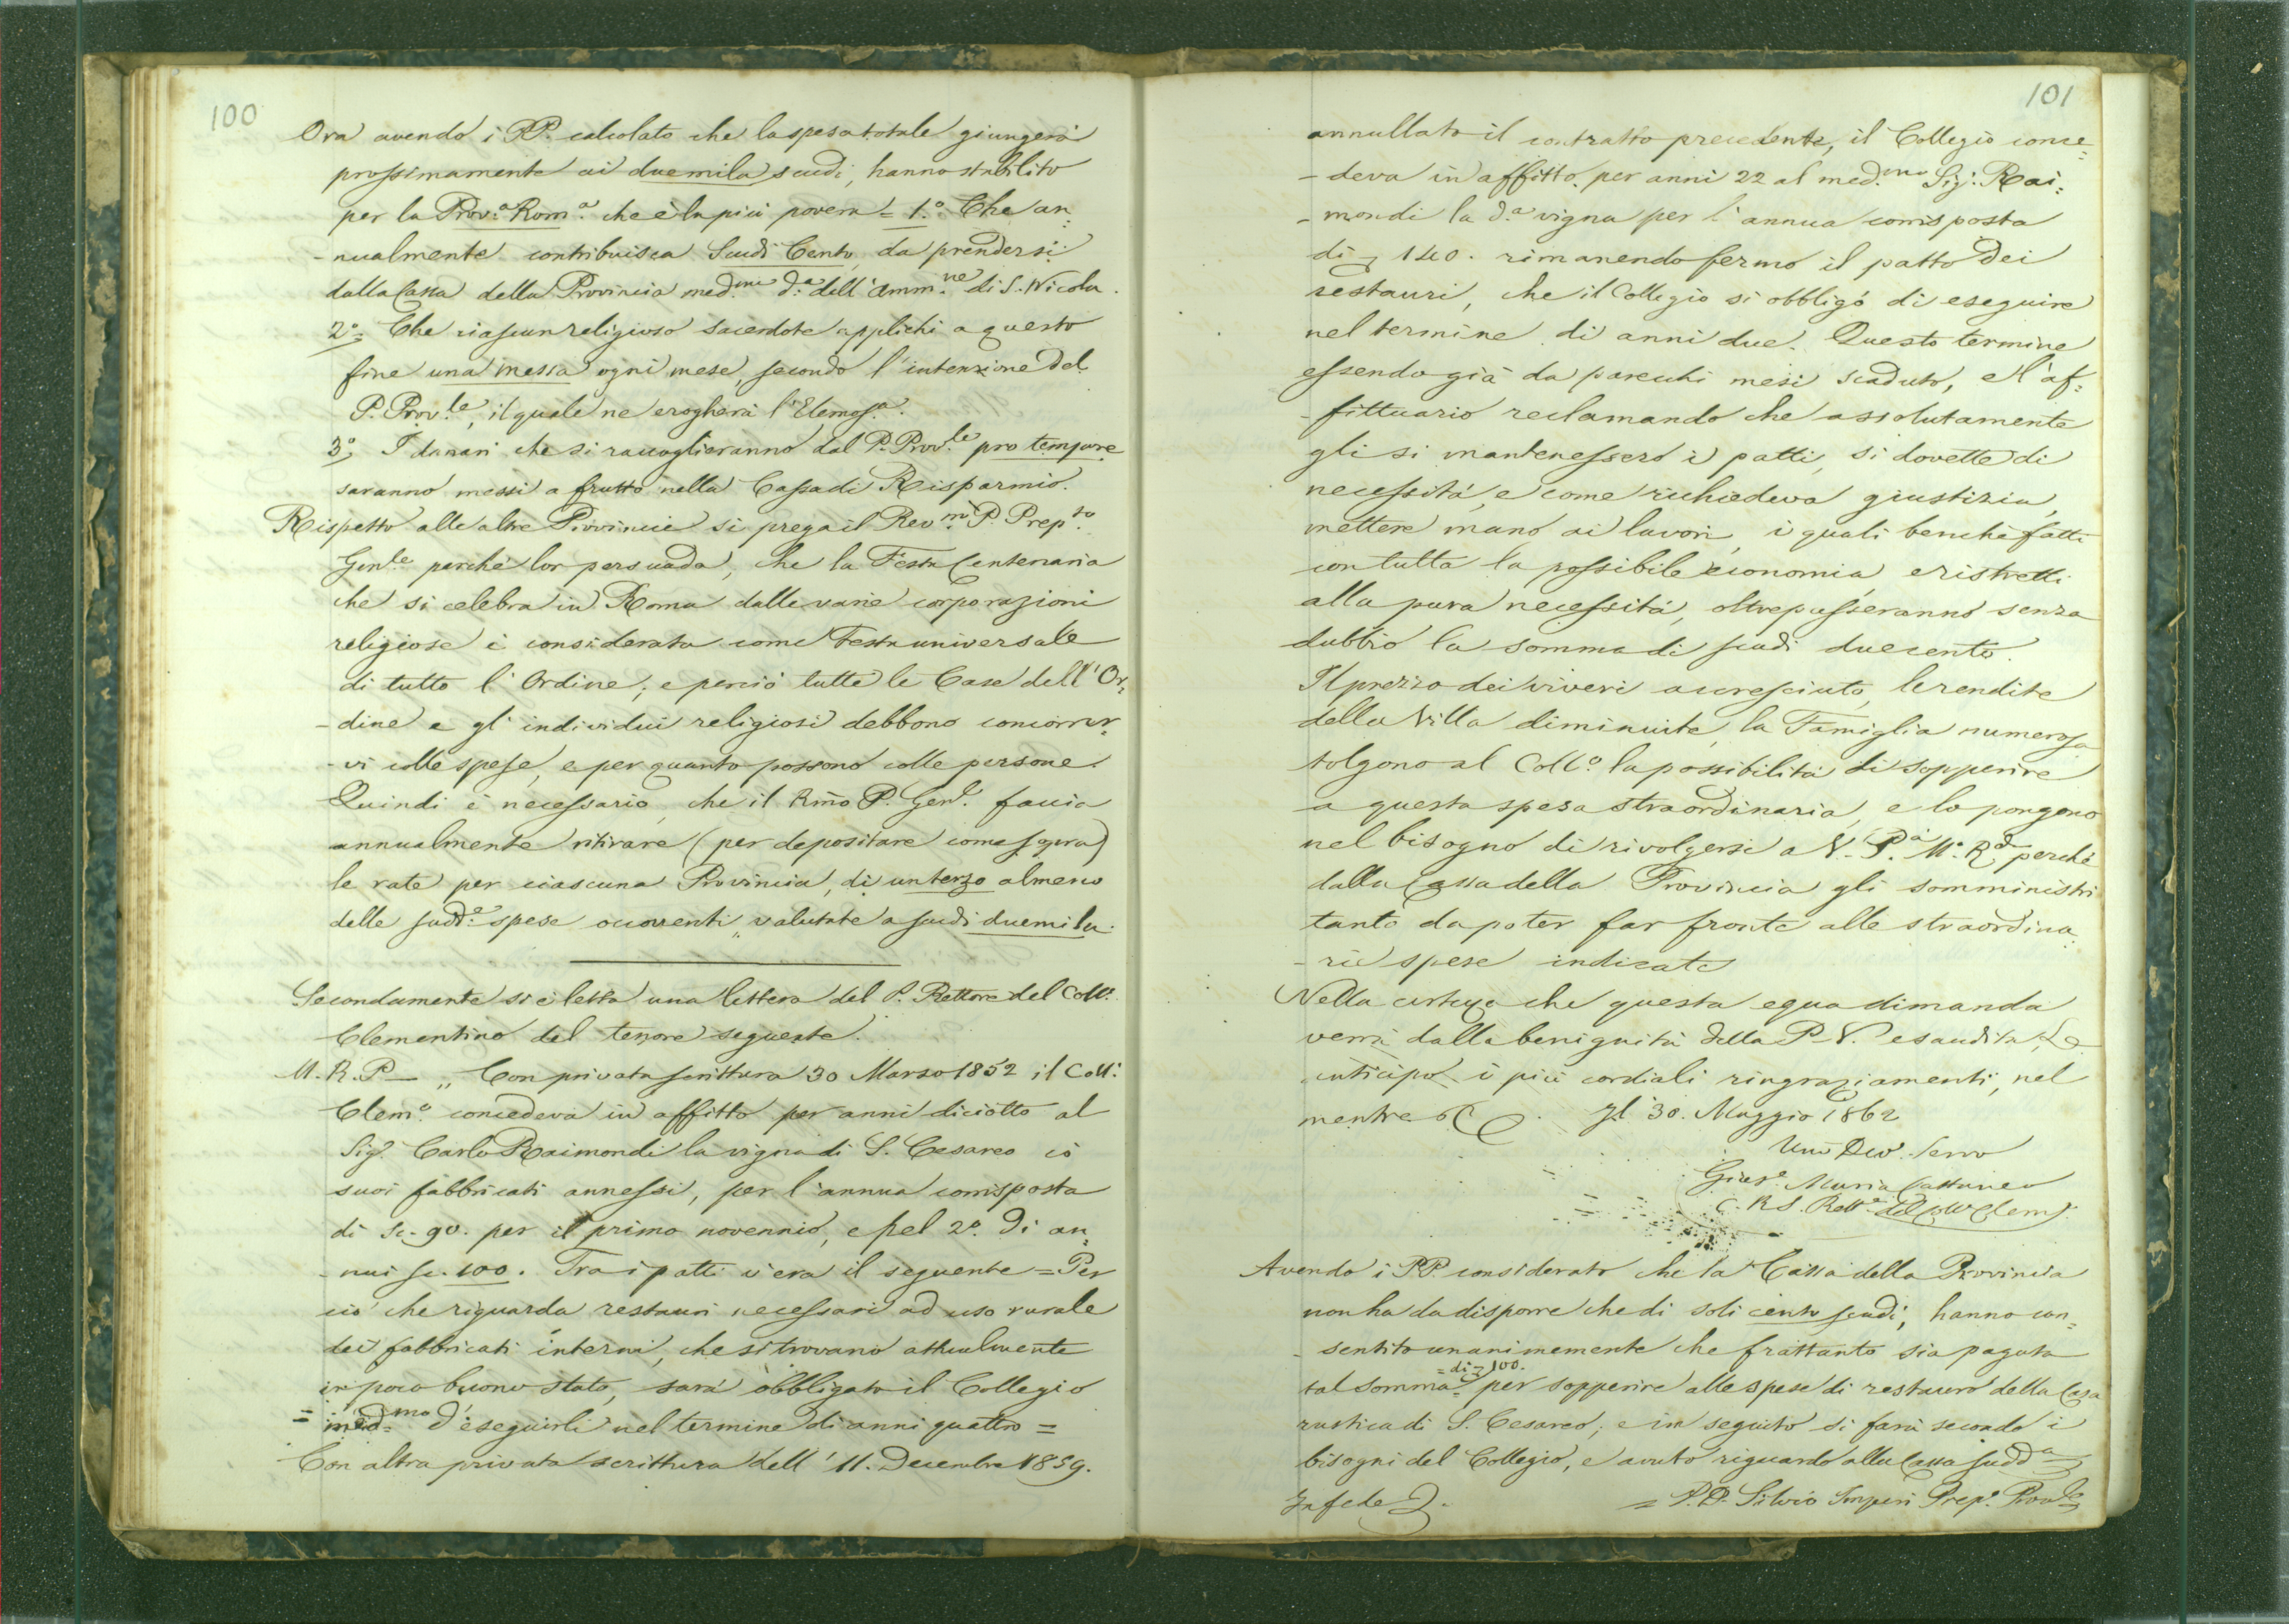 100
Ora avendo i PP. calcolato che la spesa totale giungerà
prossimamente ai duemila scudi, hanno stabilito
per la Prov.a Rom.a che è la più povera = 1.° Che an=
-nualmente contribuisca Scudi Cento, da prendersi
dalla Cassa della Provincia med.ma d.a dell'Amm.ne di S. Nicola.
2°= Che ciascun religioso sacerdote applichi a questo
fine una messa ogni mese, secondo l'intenzione del
P. Prov.le, il quale ne erogherà l'Elemos.a.
3°, I danari che si raccoglieranno dal P. Prov.le pro tempore
saranno messi a frutto nella Cassa di Risparmio.
Rispetto alle altre Provincie si prega il Rev.mo P. Prep.to
Gen.le perchè lor persuada, che la Festa Centenaria
che si celebra in Roma dalle varie corporazioni
religiose è considerata come Festa universale
di tutto l'Ordine, e perciò tutte le Case dell'Or=
-dine e gl'individui religiosi debbono concorrer=
-vi colle spese, e per quanto possono colle persone.
Quindi è necessario, che il Rmo P. Gen.le faccia
annualmente ritirare (per depositare come sopra)
le rate per ciascuna Provincia, di un terzo almeno
delle sudd.e spese occorrenti, valutate a scudi duemila.
Secondamente si è letta una lettera del P. Rettore del Coll.°
Clementino del tenore seguente.
M. R. P. — „ Con privata scrittura 30 Marzo 1852 il Coll.°
Clem.° concedeva in affitto per anni diciotto al
Sig.r Carlo Raimondi la vigna di S. Cesareo cò
suoi fabbricati annessi, per l'annua corrisposta
di sc. 90. per il primo novennio, e pel 2.° di an=
-nui sc. 100. Tra i patti v'era il seguente = Per
ciò che riguarda restauri necessari ad uso rurale
dei fabbricati interni, che si trovano attualmente
in poco buono stato, sarà obbligato il Collegio
= med.mo d'eseguirli nel termine di anni quattro =
Con altra privata scrittura dell'11. Decembre 1859.
101
annullato il contratto precedente, il Collegio conce=
-deva in affitto per anni 22 al med.mo Sig.r Rai=
-mondi la d.a vigna per l'annua corrisposta
di 140. rimanendo fermo il patto dei
restauri, che il Collegio si obbligò di eseguire
nel termine di anni due. Questo termine
essendo già da parecchi mesi scaduto, e l'af=
-fittuario reclamando che assolutamente
gli si mantenessero i patti, si dovette di
necessità, e come richiedeva giustizia,
mettere mano ai lavori, i quali benchè fatti
con tutta la possibile economia, e ristretti
alla pura necessità, oltrepasseranno senza
dubbio la somma di scudi duecento.
Il prezzo dei viveri accresciuto, le rendite
della Villa diminuite, la Famiglia numerosa
tolgono al Coll.° la possibilità di sopperire
a questa spesa straordinaria, e lo pongono
nel bisogno di rivolgersi a V. P.a M.o R.da perchè
dalla Cassa della Provincia gli somministri
tanto da poter far fronte alle straordina=
-rie spese indicate
Nella certezza che questa equa dimanda
verrà dalla benignità della P. V. esaudita, Le
anticipo i più cordiali ringraziamenti, nel
mentre &c. Il 30. Maggio 1862
Umo Dev. Servo
Gius.e Maria Cattaneo
C. R. S. Rett.e del Coll Clem.
Avendo i PP. considerato che la Cassa della Provincia
non ha da disporre che di soli cento scudi, hanno con=
-sentito unanimemente che frattanto sia pagata
= di 100.
tal somma = per sopperire alle spese di restauro della Casa
rustica di S. Cesareo; e in seguito si farà secondo i
bisogni del Collegio, e avuto riguardo alla Cassa sudd.a
In fede
= P. D. Silvio Imperi Prep.° Prov.le